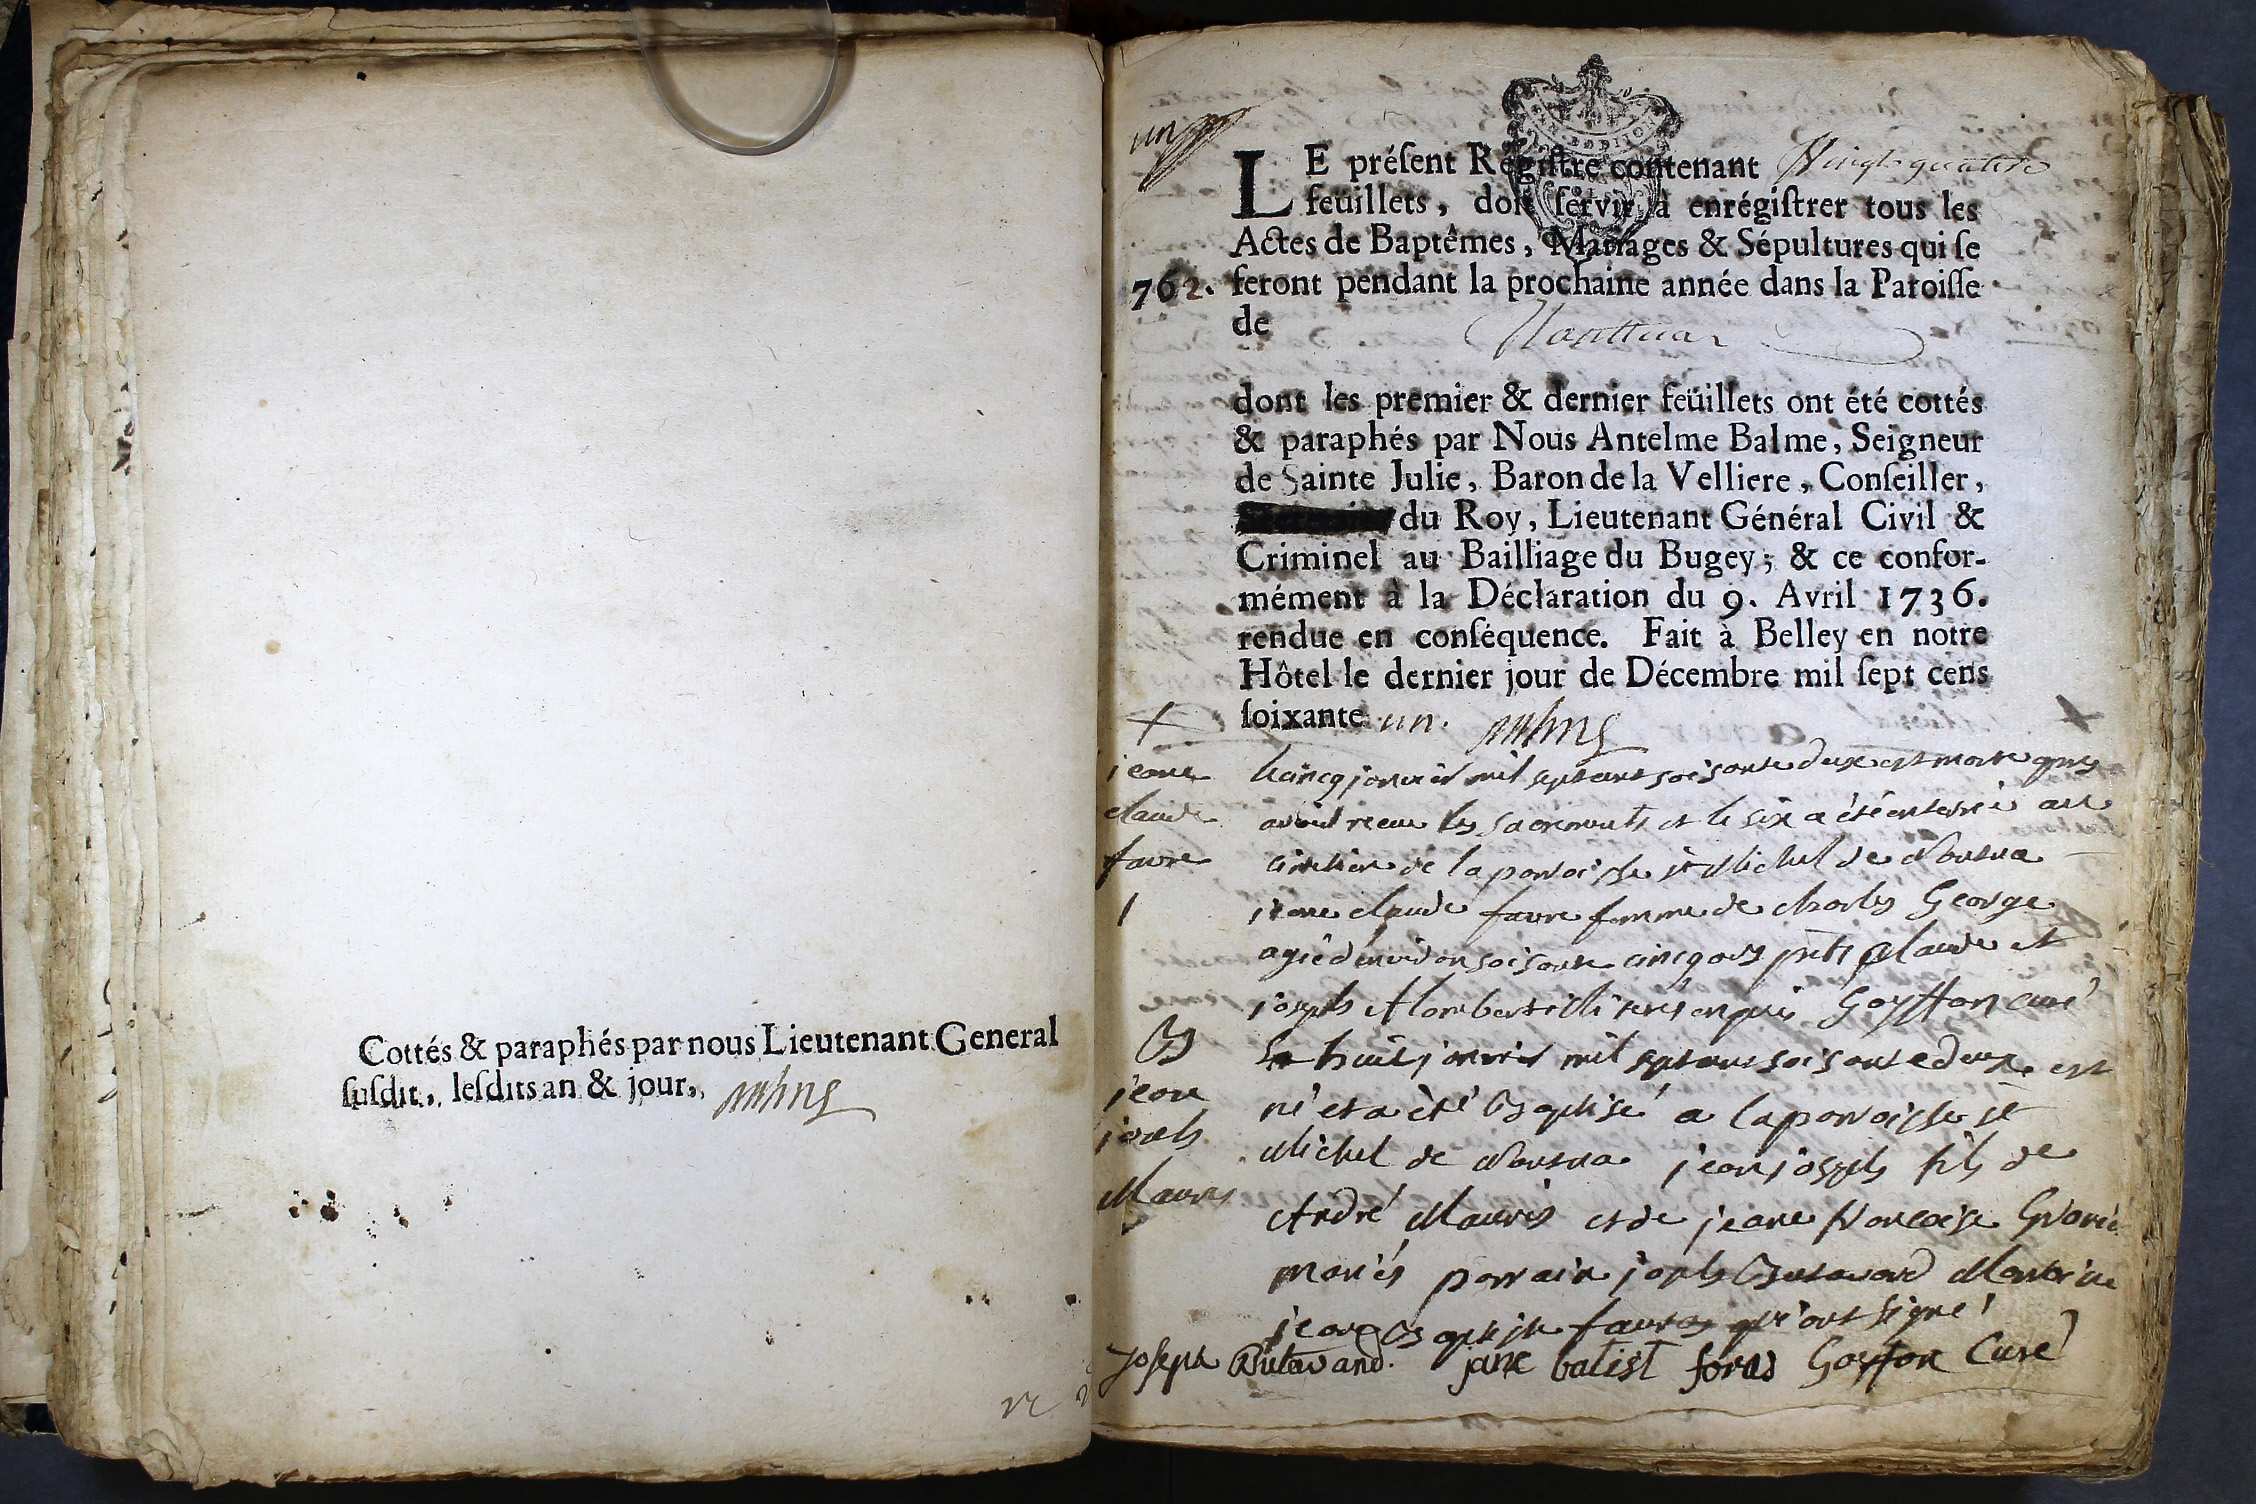 Cottés & paraphés par nous Lieutenant General
susdit, lesdits an & jour,
un
LE préſent Régiſtre contenant Vingt quatre
feüillets, doit ſervir à enrégiſtrer tous les
Actes de Baptêmes, Mariages & Sépultures qui ſe
762. feront pendant la prochaine année dans la Paroiſſe
de Nanttua
dont les premier & dernier feüillets ont été cottés
& paraphés par Nous Antelme Balme, Seigneur
de Sainte Julie, Baron de la Velliere, Conſeiller,
du Roy, Lieutenant Général Civil &
Criminel au Bailliage du Bugey; & ce confor-
mément à la Déclaration du 9. Avril 1736.
rendue en conſéquence. Fait à Belley en notre
Hôtel le dernier jour de Décembre mil ſept cens
ſoixante un.
jeane
claude
favre
1
le cinq janvier mil sept cent soisante deux est morte apres
avoir receu les sacrements et le six a été enterrée au
cimetiere de la parroisse st Michel de Nantua
jeane claude favre femme de charles George
agée d'environ soisante cinq ans claude et
joseph Goyffon curé
B
jean
joseph
Mauris
Le huit janvier mil sept cent soisante deux est
né et a été baptisé a la parroisse st
Michel de Nantua jean joseph fils de
André Mauris et de jeane francoise
mariés parrain joseph Butavand Marrine
jeane baptiste favre qui ont signé
Joseph Butavand. jane batist foras Goyffon Curé